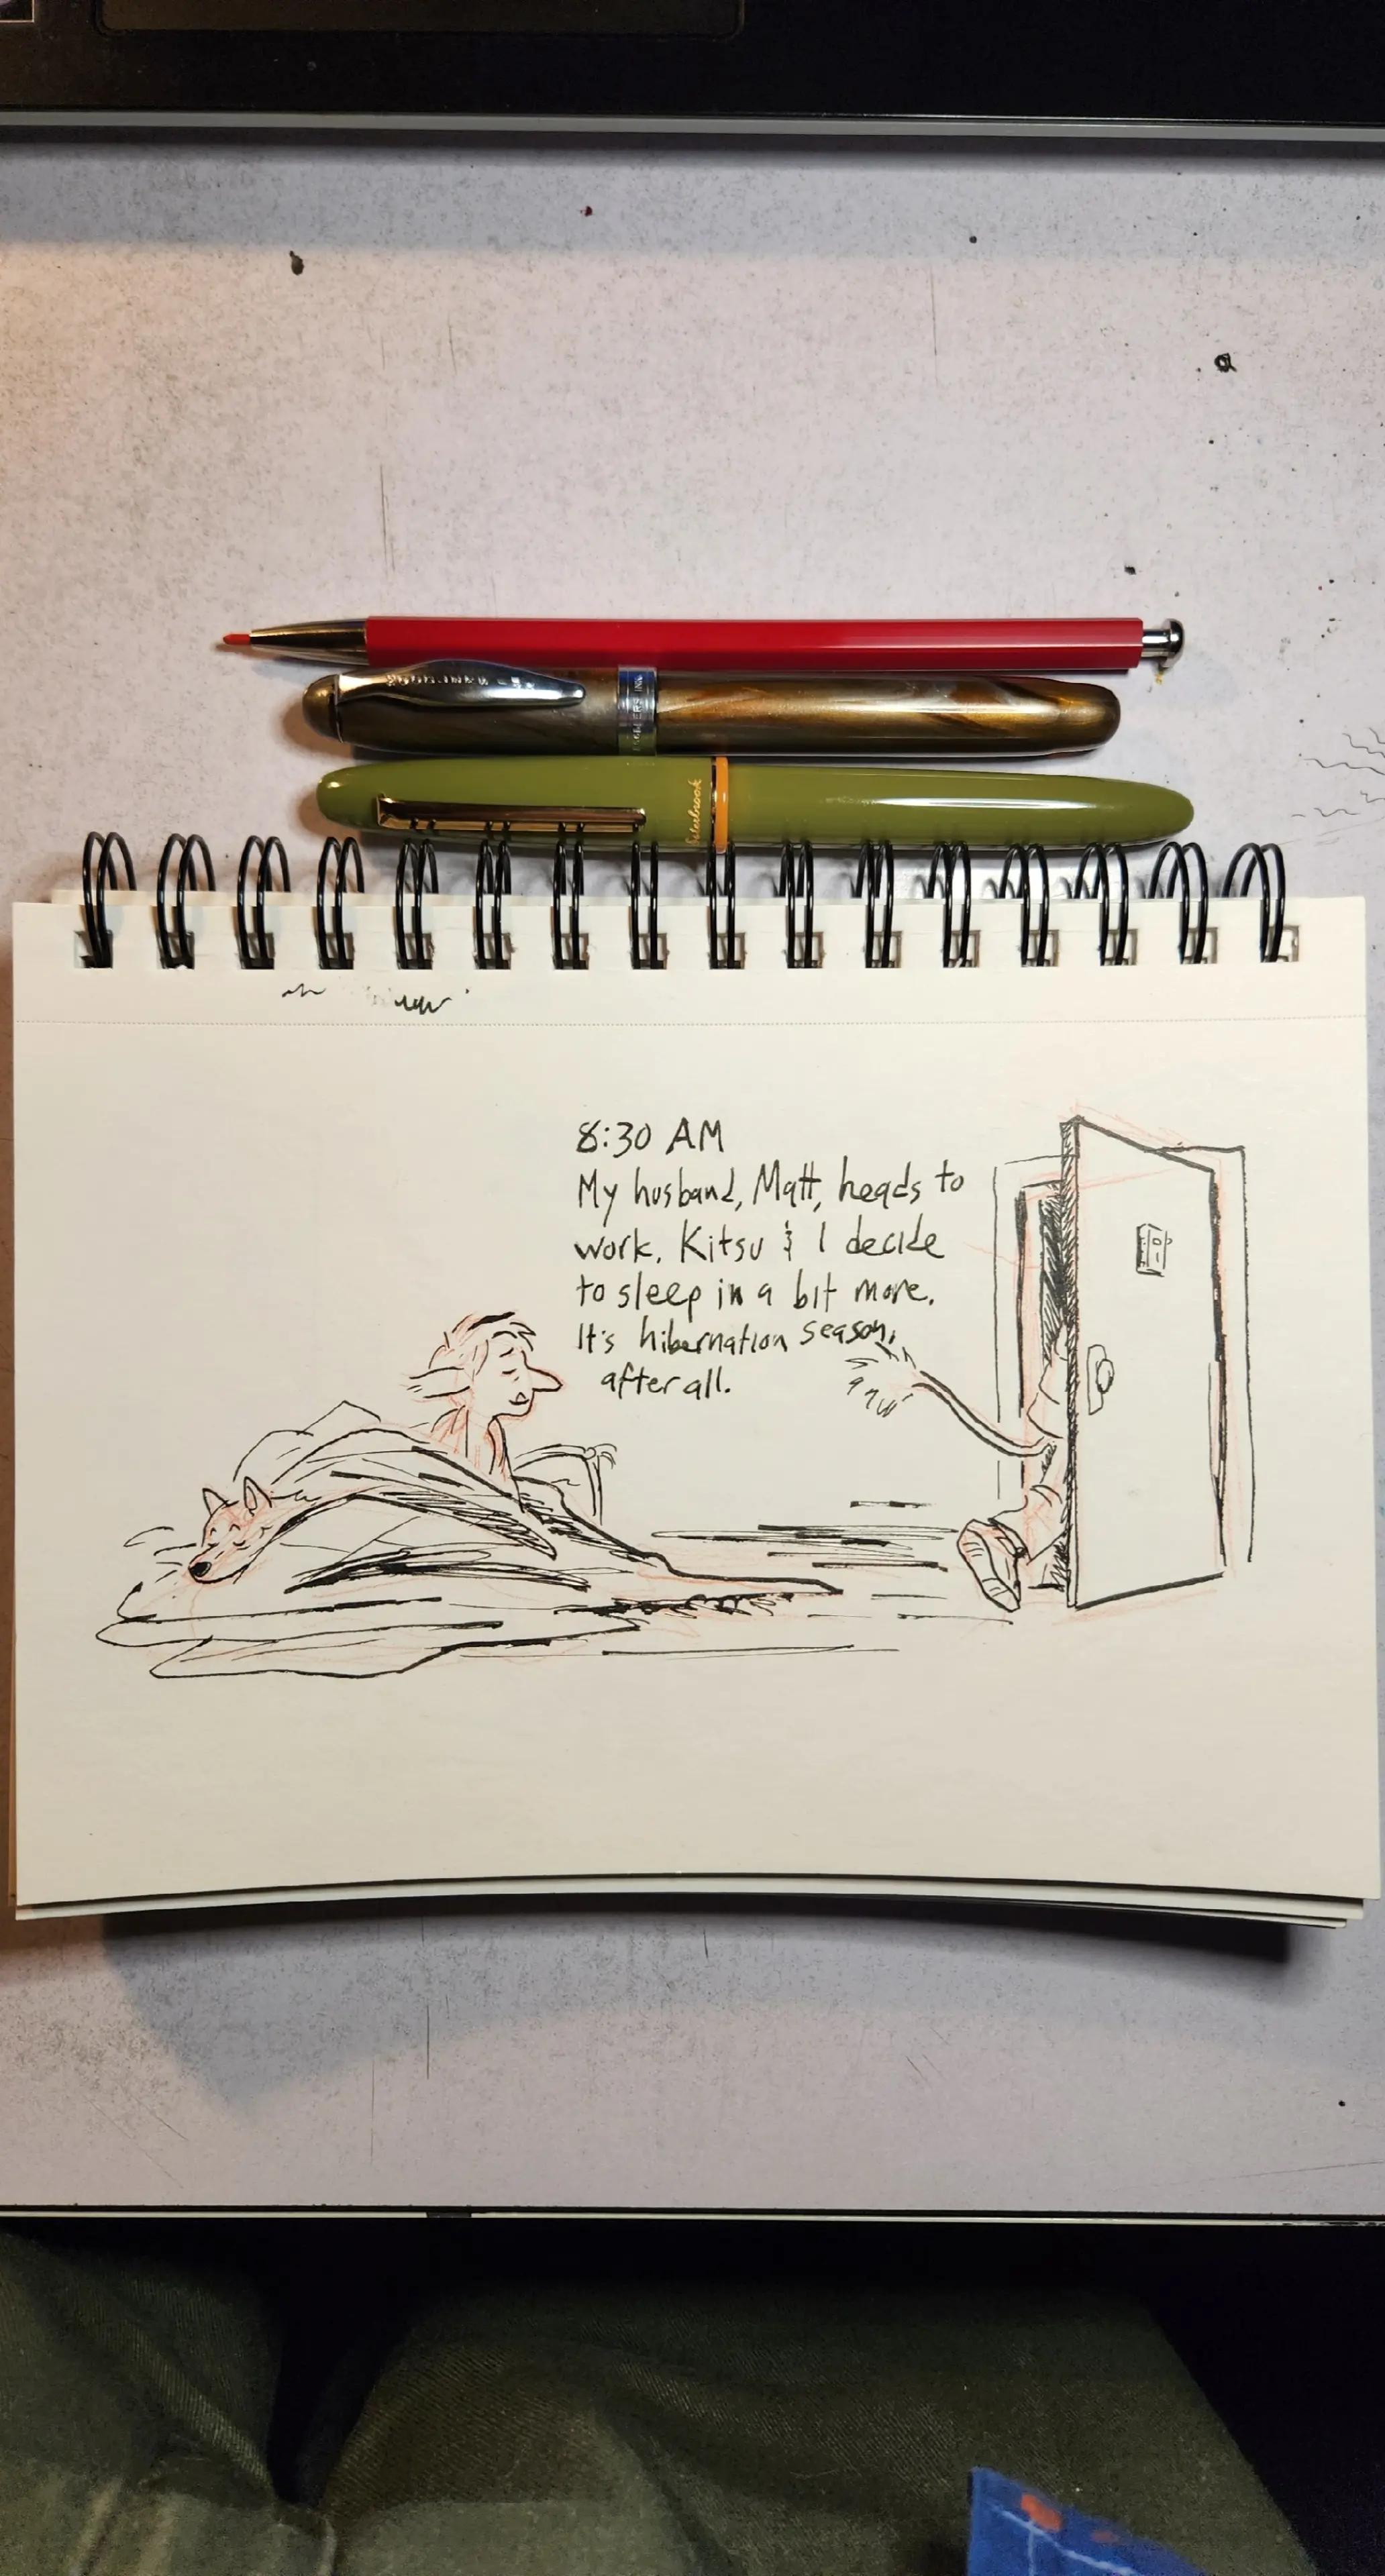 Esterbrook
8:30 AM
My husband, Matt, heads to
work. Kitsu & I decide
to sleep in a bit more.
It's hibernation season,
after all.